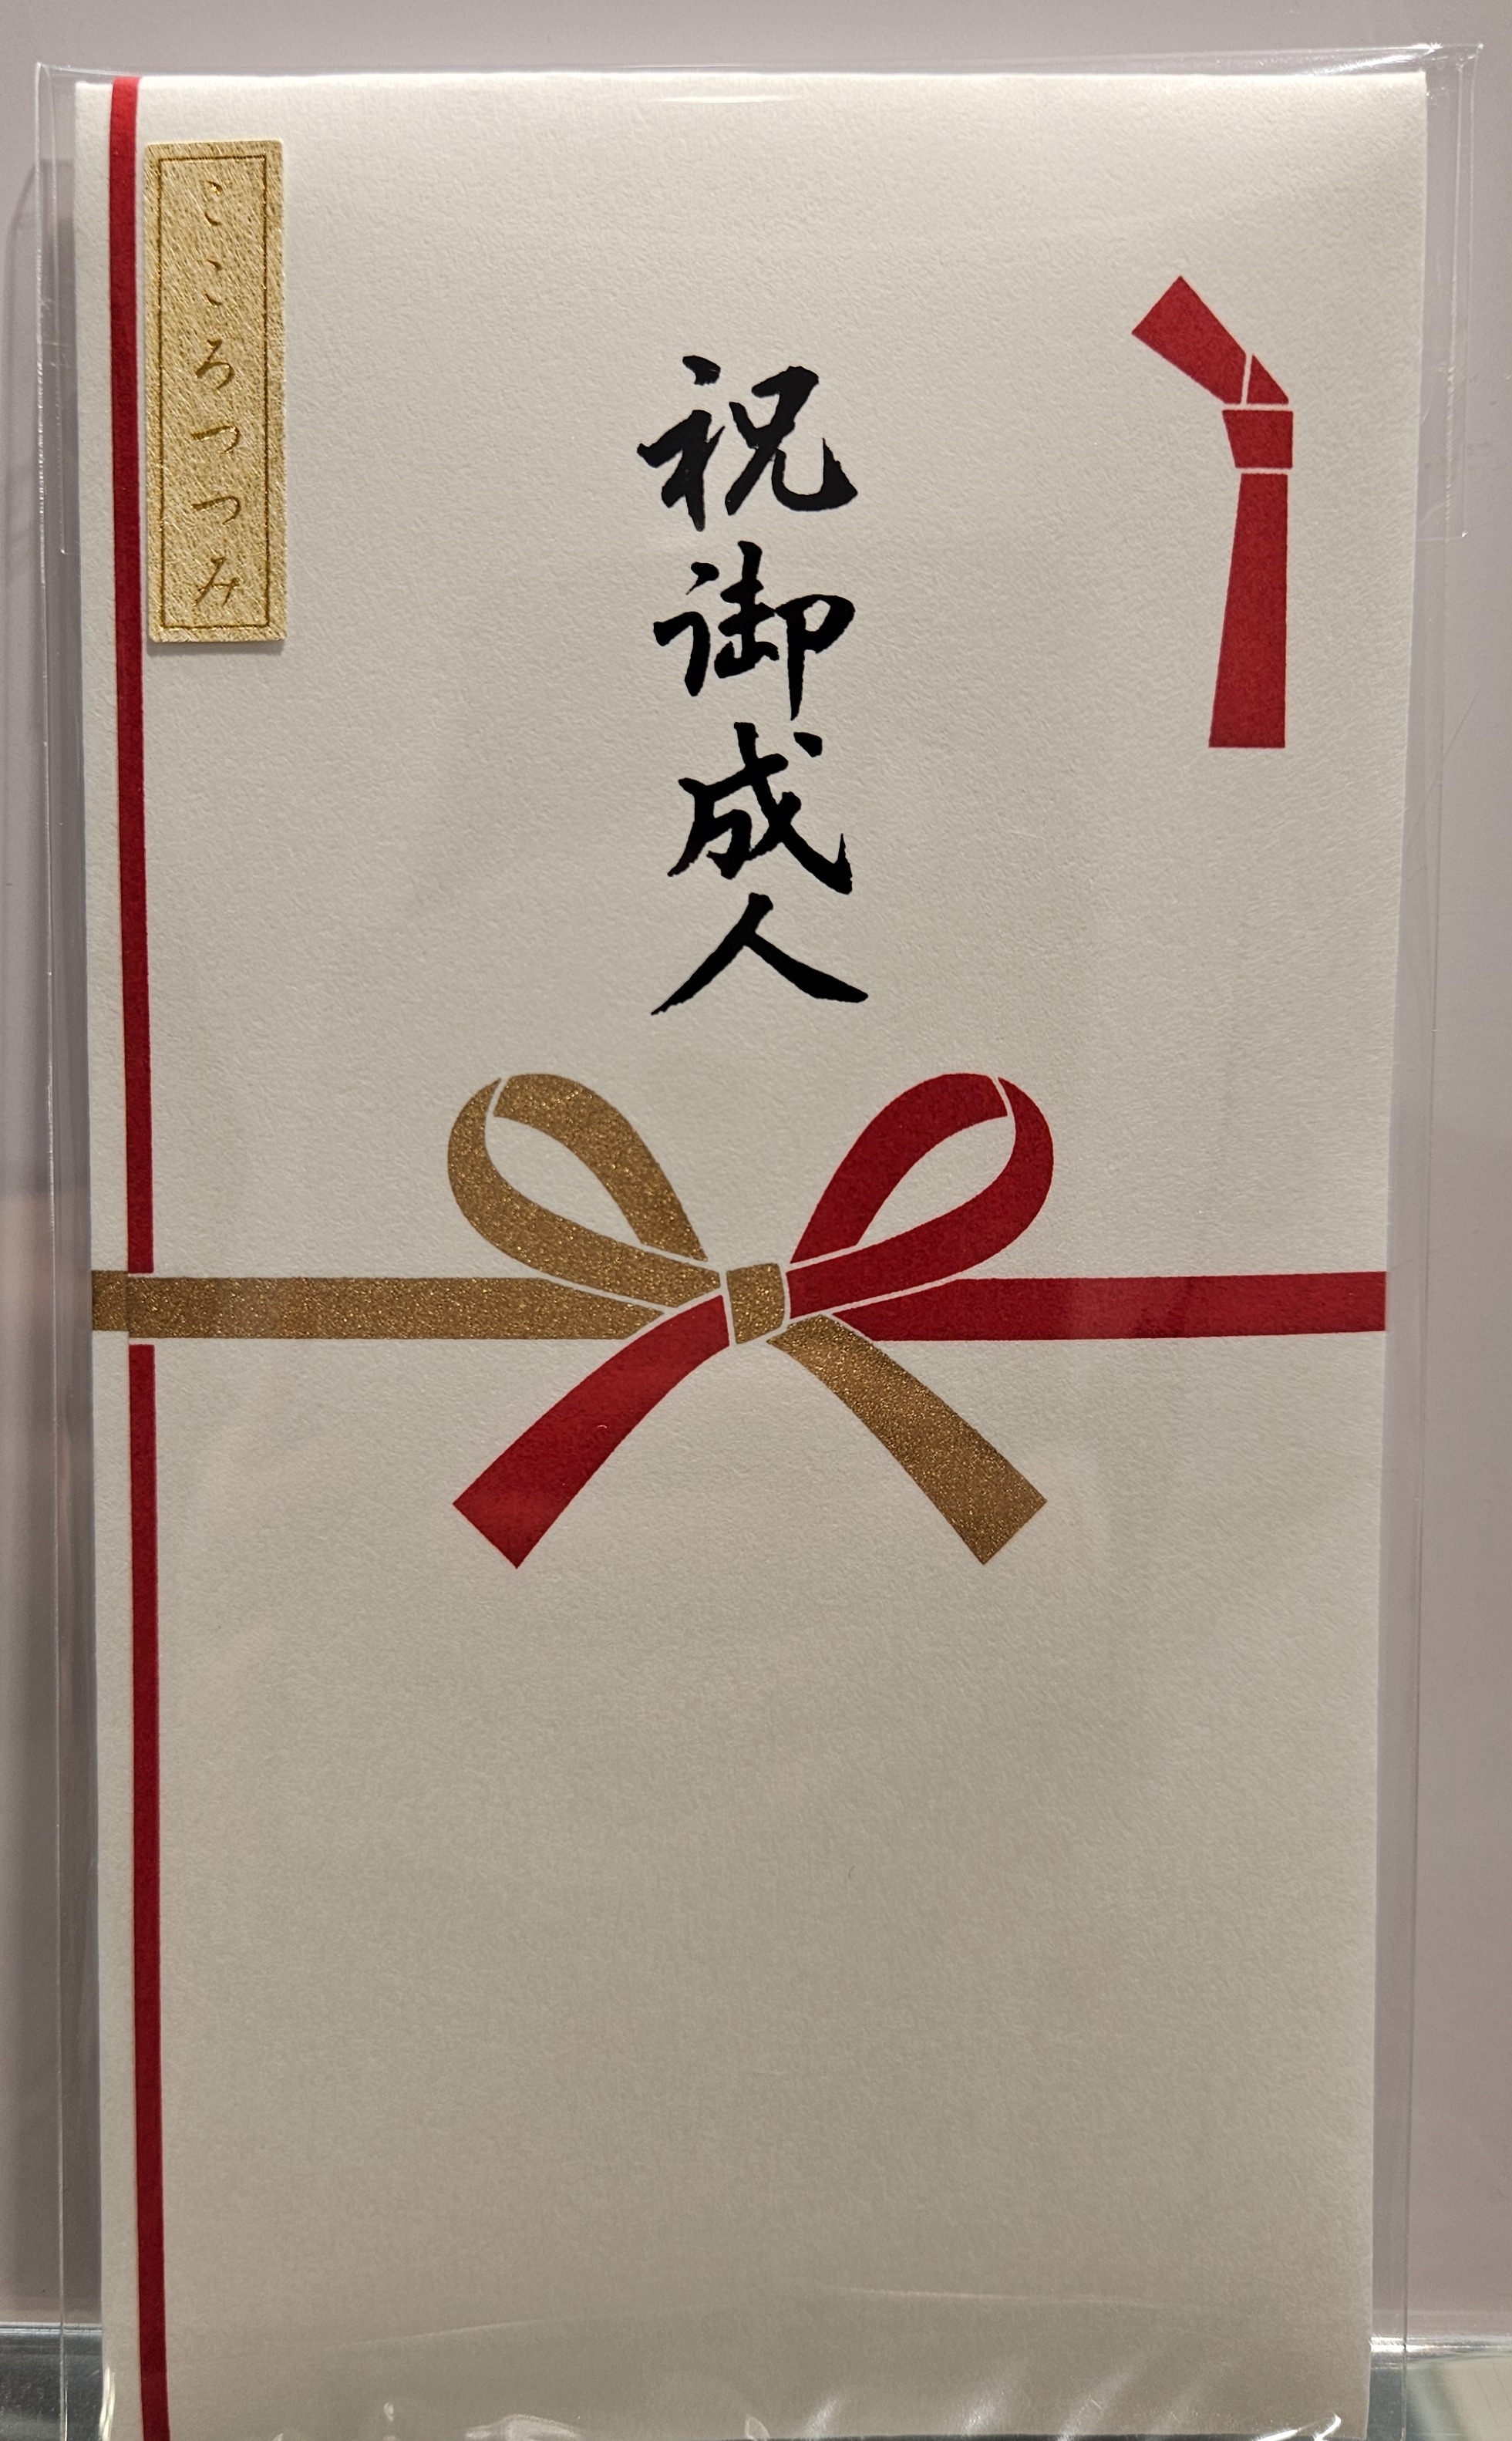 祝御成人
こころつつみ